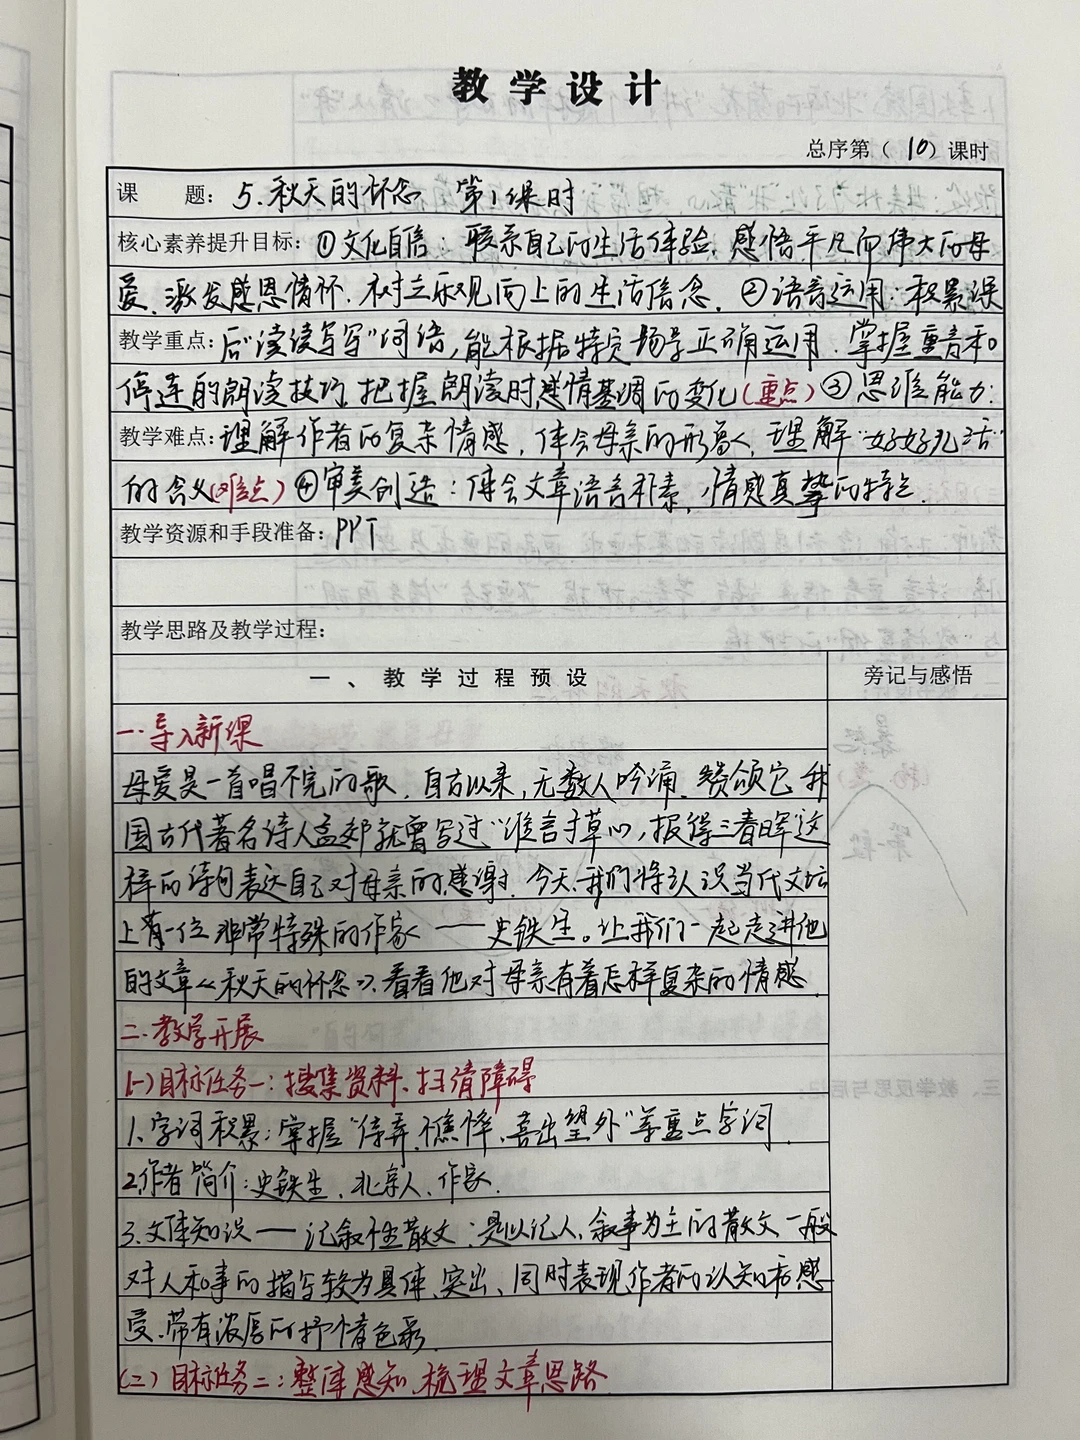 教学设计
总序第（10）课时
课 题：5.秋天的怀念 第1课时
核心素养提升目标：①文化自信：联系自己的生活体验，感悟平凡而伟大的母
爱，激发感恩情怀，树立乐观向上的生活信念。②语言运用：积累课
教学重点：后“读读写写”词语，能根据特定场景正确运用，掌握重音和
停连的朗读技巧，把握朗读时感情基调的变化（重点）③思维能力：
教学难点：理解作者的复杂情感，体会母亲的形象，理解“好好儿活”
的含义（难点）④审美创造：体会文章语言朴素，情感真挚的特点。
教学资源和手段准备：PPT
教学思路及教学过程：
一、教学过程预设
旁记与感悟
一.导入新课
母爱是一首唱不完的歌，自古以来，无数人吟诵、赞颂它，我
国古代著名诗人孟郊就曾写过“谁言寸草心，报得三春晖”这
样的诗句表达自己对母亲的感谢。今天，我们将认识当代文坛
上有一位非常特殊的作家——史铁生。让我们一起走进他
的文章《秋天的怀念》，看看他对母亲有着怎样复杂的情感。
二.教学开展
(一)目标任务一：搜集资料、扫清障碍
1.字词积累：掌握“侍弄、憔悴、喜出望外”等重点字词。
2.作者简介：史铁生，北京人，作家。
3.文体知识——记叙性散文：是以记人、叙事为主的散文，一般
对人和事的描写较为具体、突出，同时表现作者的认知和感
受，带有浓厚的抒情色彩。
(二)目标任务二：整体感知，梳理文章思路